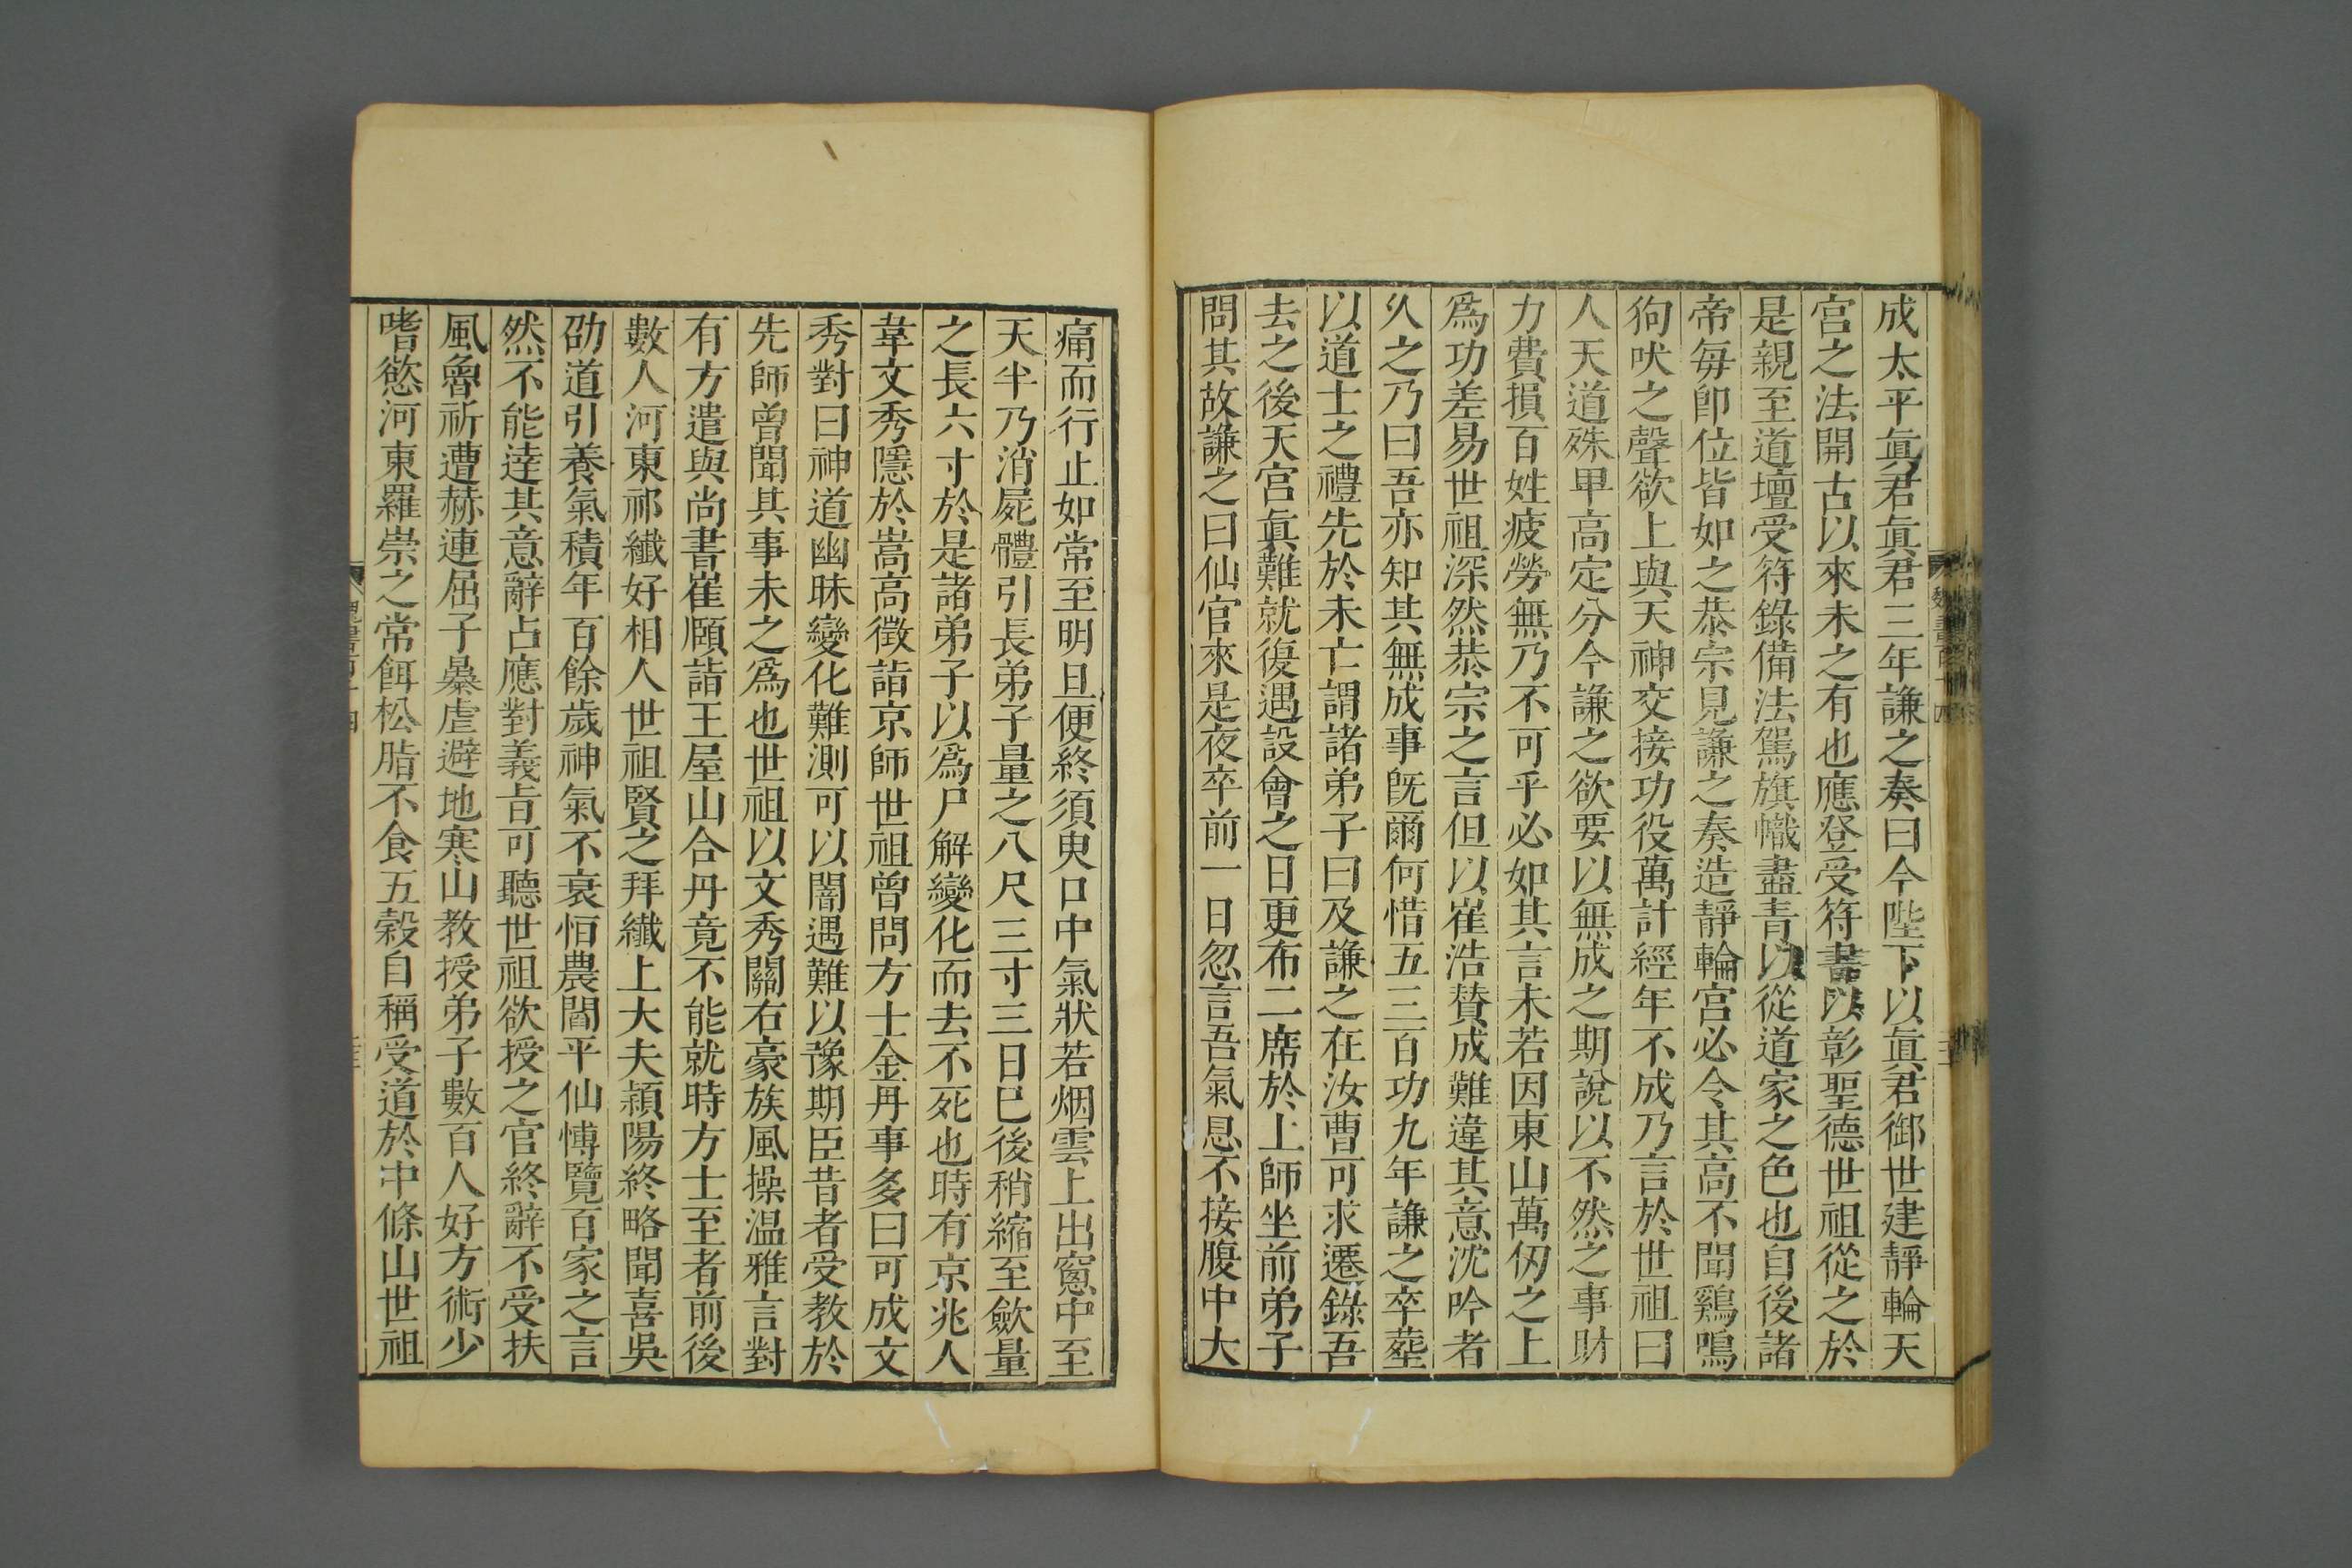 成太平眞君眞君三年謙之奏曰今陛下以眞君御世建靜輪天
宮之法開古以來未之有也應登受符書以彰聖德世祖從之於
是親至道壇受符錄備法駕旗幟盡靑以從道家之色也自後諸
帝每卽位皆如之恭宗見謙之奏造靜輪宮必令其高不聞鷄鳴
狗吠之聲欲上與天神交接功役萬計經年不成乃言於世祖曰
人天道殊甲高定分今謙之欲要以無成之期說以不然之事財
力費損百姓疲勞無乃不可乎必如其言未若因東山萬仞之上
爲功差易世祖深然恭宗之言但以崔浩賛成難違其意沈吟者
久之乃曰吾亦知其無成事旣爾何惜五三百功九年謙之卒塟
以道士之禮先於未亡謂諸弟子曰及謙之在汝曹可求遷錄吾
去之後天宮眞難就復遇設會之日更布二席於上師坐前弟子
問其故謙之曰仙官來是夜卒前一日忽言吾氣息不接腹中大
痛而行止如常至明旦便終須臾口中氣狀若烟雲上出窻中至
天半乃消屍體引長弟子量之八尺三寸三日巳後稍縮至斂量
之長六寸於是諸弟子以爲尸解變化而去不死也時有京兆人
韋文秀隱於嵩高徵詣京師世祖曾問方士金丹事多曰可成文
秀對曰神道幽昧變化難測可以闇遇難以豫期臣昔者受教於
先師曾聞其事未之爲也世祖以文秀關右豪族風操温雅言對
有方遣與尚書崔頤詣王屋山合丹竟不能就時方士至者前後
數人河東祁纖好相人世祖賢之拜纖上大夫潁陽終略聞喜吳
劭道引養氣積年百餘歲神氣不衰恒農閻平仙博覽百家之言
然不能達其意辭占應對義旨可聽世祖欲授之官終辭不受扶
風魯祈遭赫連屈子暴虐避地寒山教授弟子數百人好方術少
嗜慾河東羅崇之常餌松脂不食五穀自稱受道於中條山世祖